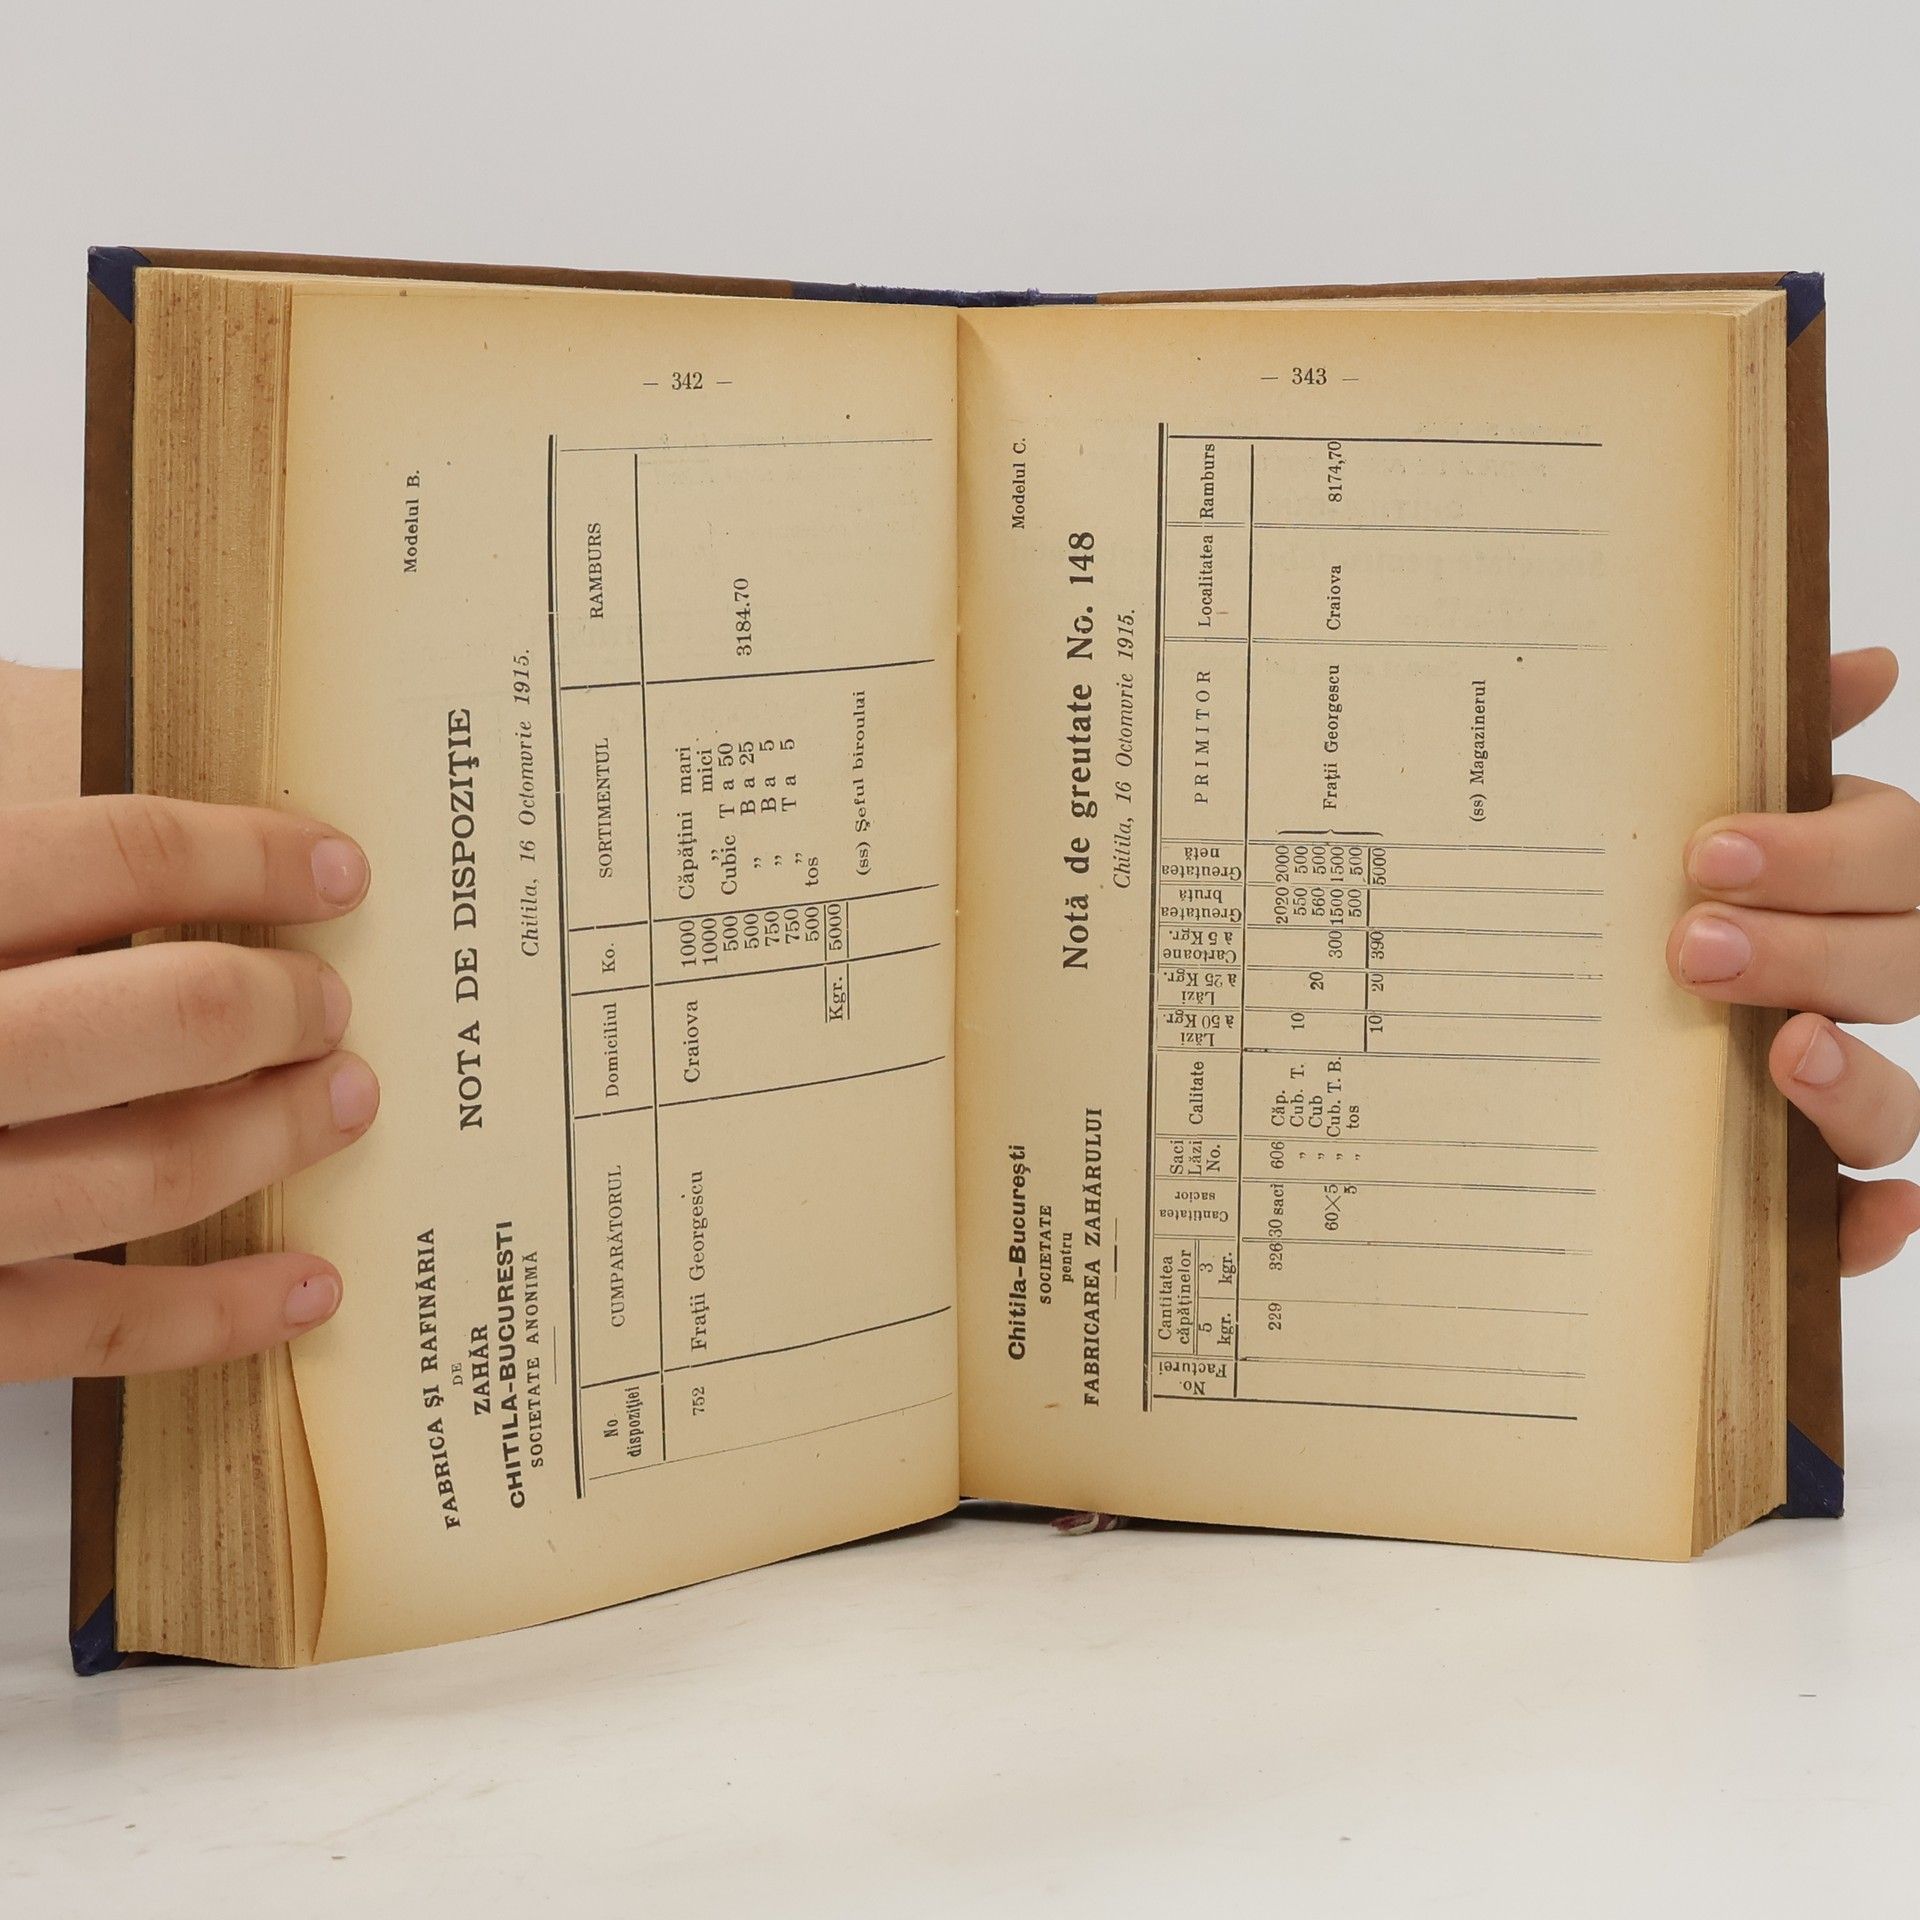 — 342 —
Modelul B.
FABRICA ŞI RAFINĂRIA
DE
ZAHĂR
CHITILA-BUCURESTI
SOCIETATE ANONIMĂ
NOTA DE DISPOZIŢIE
Chitila, 16 Octomvrie 1915.
No dispoziţiei CUMPARĂTORUL Domiciliul Ko. SORTIMENTUL RAMBURS
752 Fraţii Georgescu Craiova 1000 Căpăţini mari
1000 „ mici
500 Cubic T a 50 3184.70
500 „ B a 25
750 „ B a 5
750 „ T a 5
500 tos
Kgr. 5000
(ss) Şeful biroului
— 343 —
Modelul C.
Chitila-Bucureşti
SOCIETATE
pentru
FABRICAREA ZAHĂRULUI
Notă de greutate No. 148
Chitila, 16 Octomvrie 1915.
No. Facturei Cantitatea căpăţinelor 5 kgr. 3 kgr. Cantitatea sacior Saci Lăzi No. Calitate Lăzi a 50 Kgr. Lăzi à 25 Kgr. Cartoane à 5 Kgr. Greutatea brută Greutatea netă PRIMITOR Localitatea Ramburs
229 326 30 saci 606 Căp. 2020 2000
„ Cub. T. 10 550 500
„ Cub 20 560 500
60×5 „ Cub. T. B. 300 1500 1500 Fraţii Georgescu Craiova 8174,70
5 „ tos 500 500
10 20 390 5000
(ss) Magazinerul